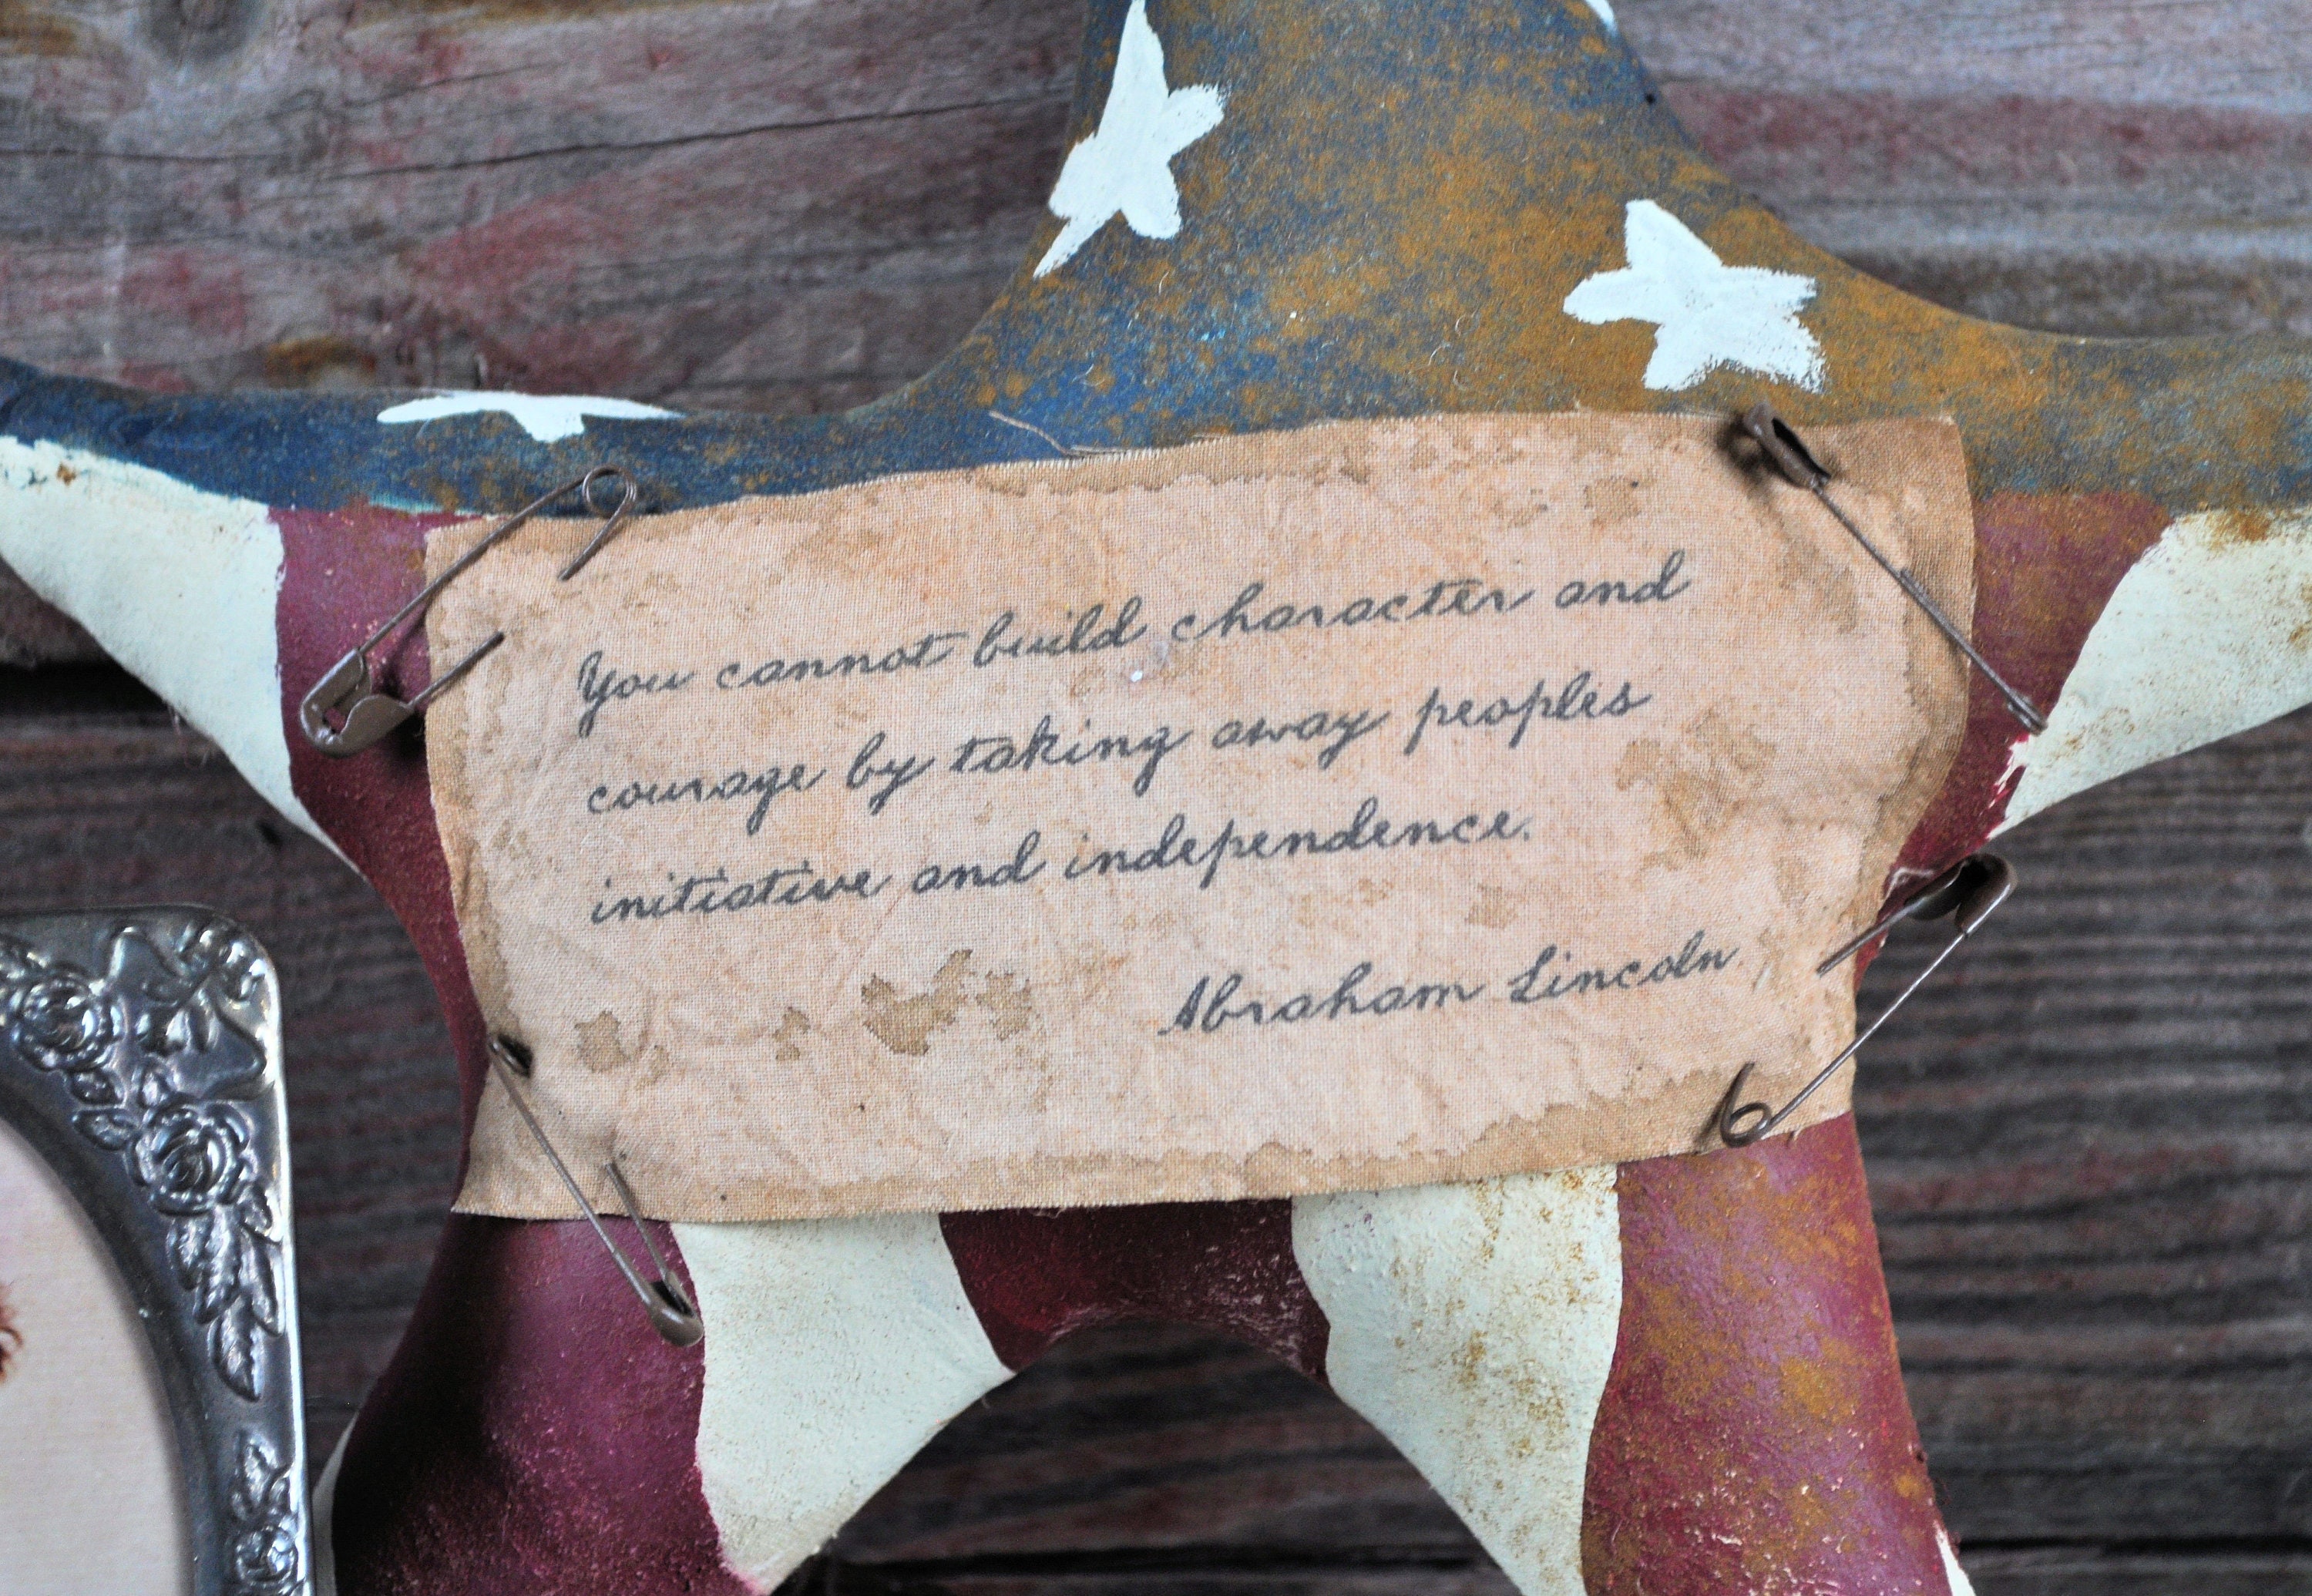 You cannot build character and
courage by taking away peoples
initiative and independence.
Abraham Lincoln